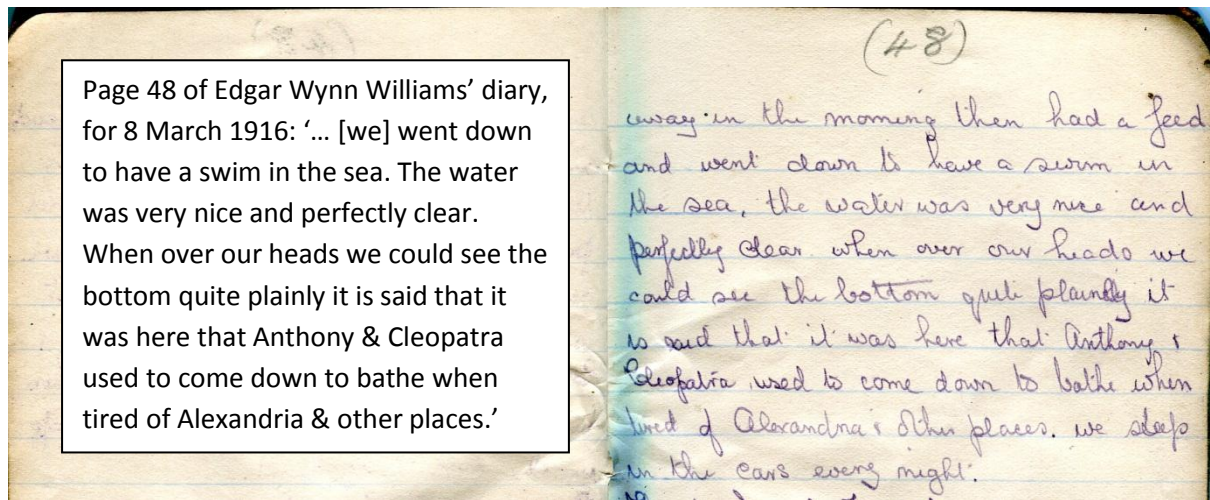 Page 48 of Edgar Wynn Williams’ diary,
for 8 March 1916: ‘… [we] went down
to have a swim in the sea. The water
was very nice and perfectly clear.
When over our heads we could see the
bottom quite plainly it is said that it
was here that Anthony & Cleopatra
used to come down to bathe when
tired of Alexandria & other places.’
(48)
away in the morning then had a feed
and went down to have a swim in
the sea, the water was very nice and
perfectly clear. when over our heads we
could see the bottom quite plainly it
is said that it was here that Anthony &
Cleopatra used to come down to bathe when
tired of Alexandria & other places. we sleep
in the cars every night.